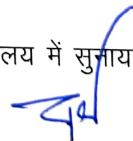 लय में सुनाय